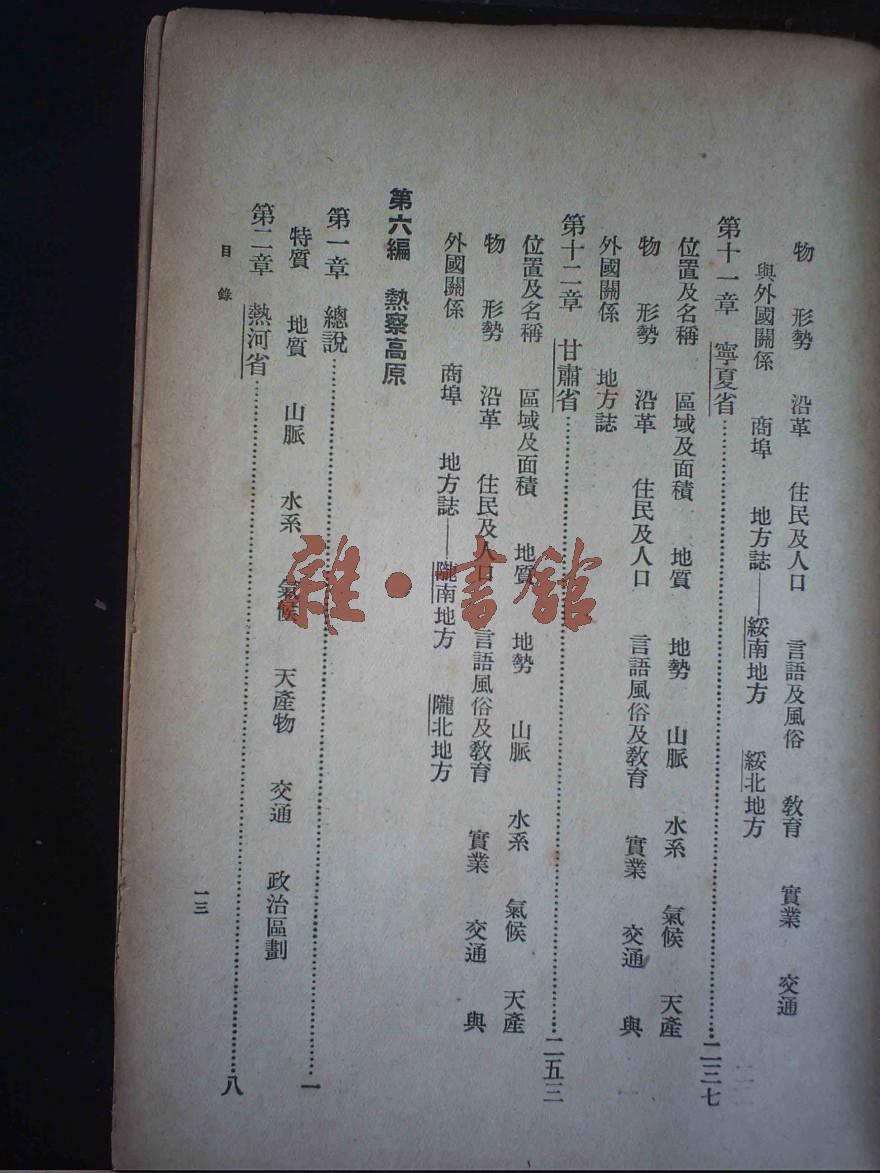 物 形勢 沿革 住民及人口 言語及風俗 教育 實業 交通
與外國關係 商埠 地方誌——綏南地方 綏北地方
第十一章 寧夏省……二三七
位置及名稱 區域及面積 地質 地勢 山脈 水系 氣候 天產
物 形勢 沿革 住民及人口 言語風俗及教育 實業 交通 與
外國關係 地方誌
第十二章 甘肅省……二五三
位置及名稱 區域及面積 地質 地勢 山脈 水系 氣候 天產
物 形勢 沿革 住民及人口 言語風俗及教育 實業 交通 與
外國關係 商埠 地方誌——隴南地方 隴北地方
第六編 熱察高原
第一章 總說……一
特質 地質 山脈 水系 氣候 天產物 交通 政治區劃
第二章 熱河省……八
目錄
一三
雜·書館